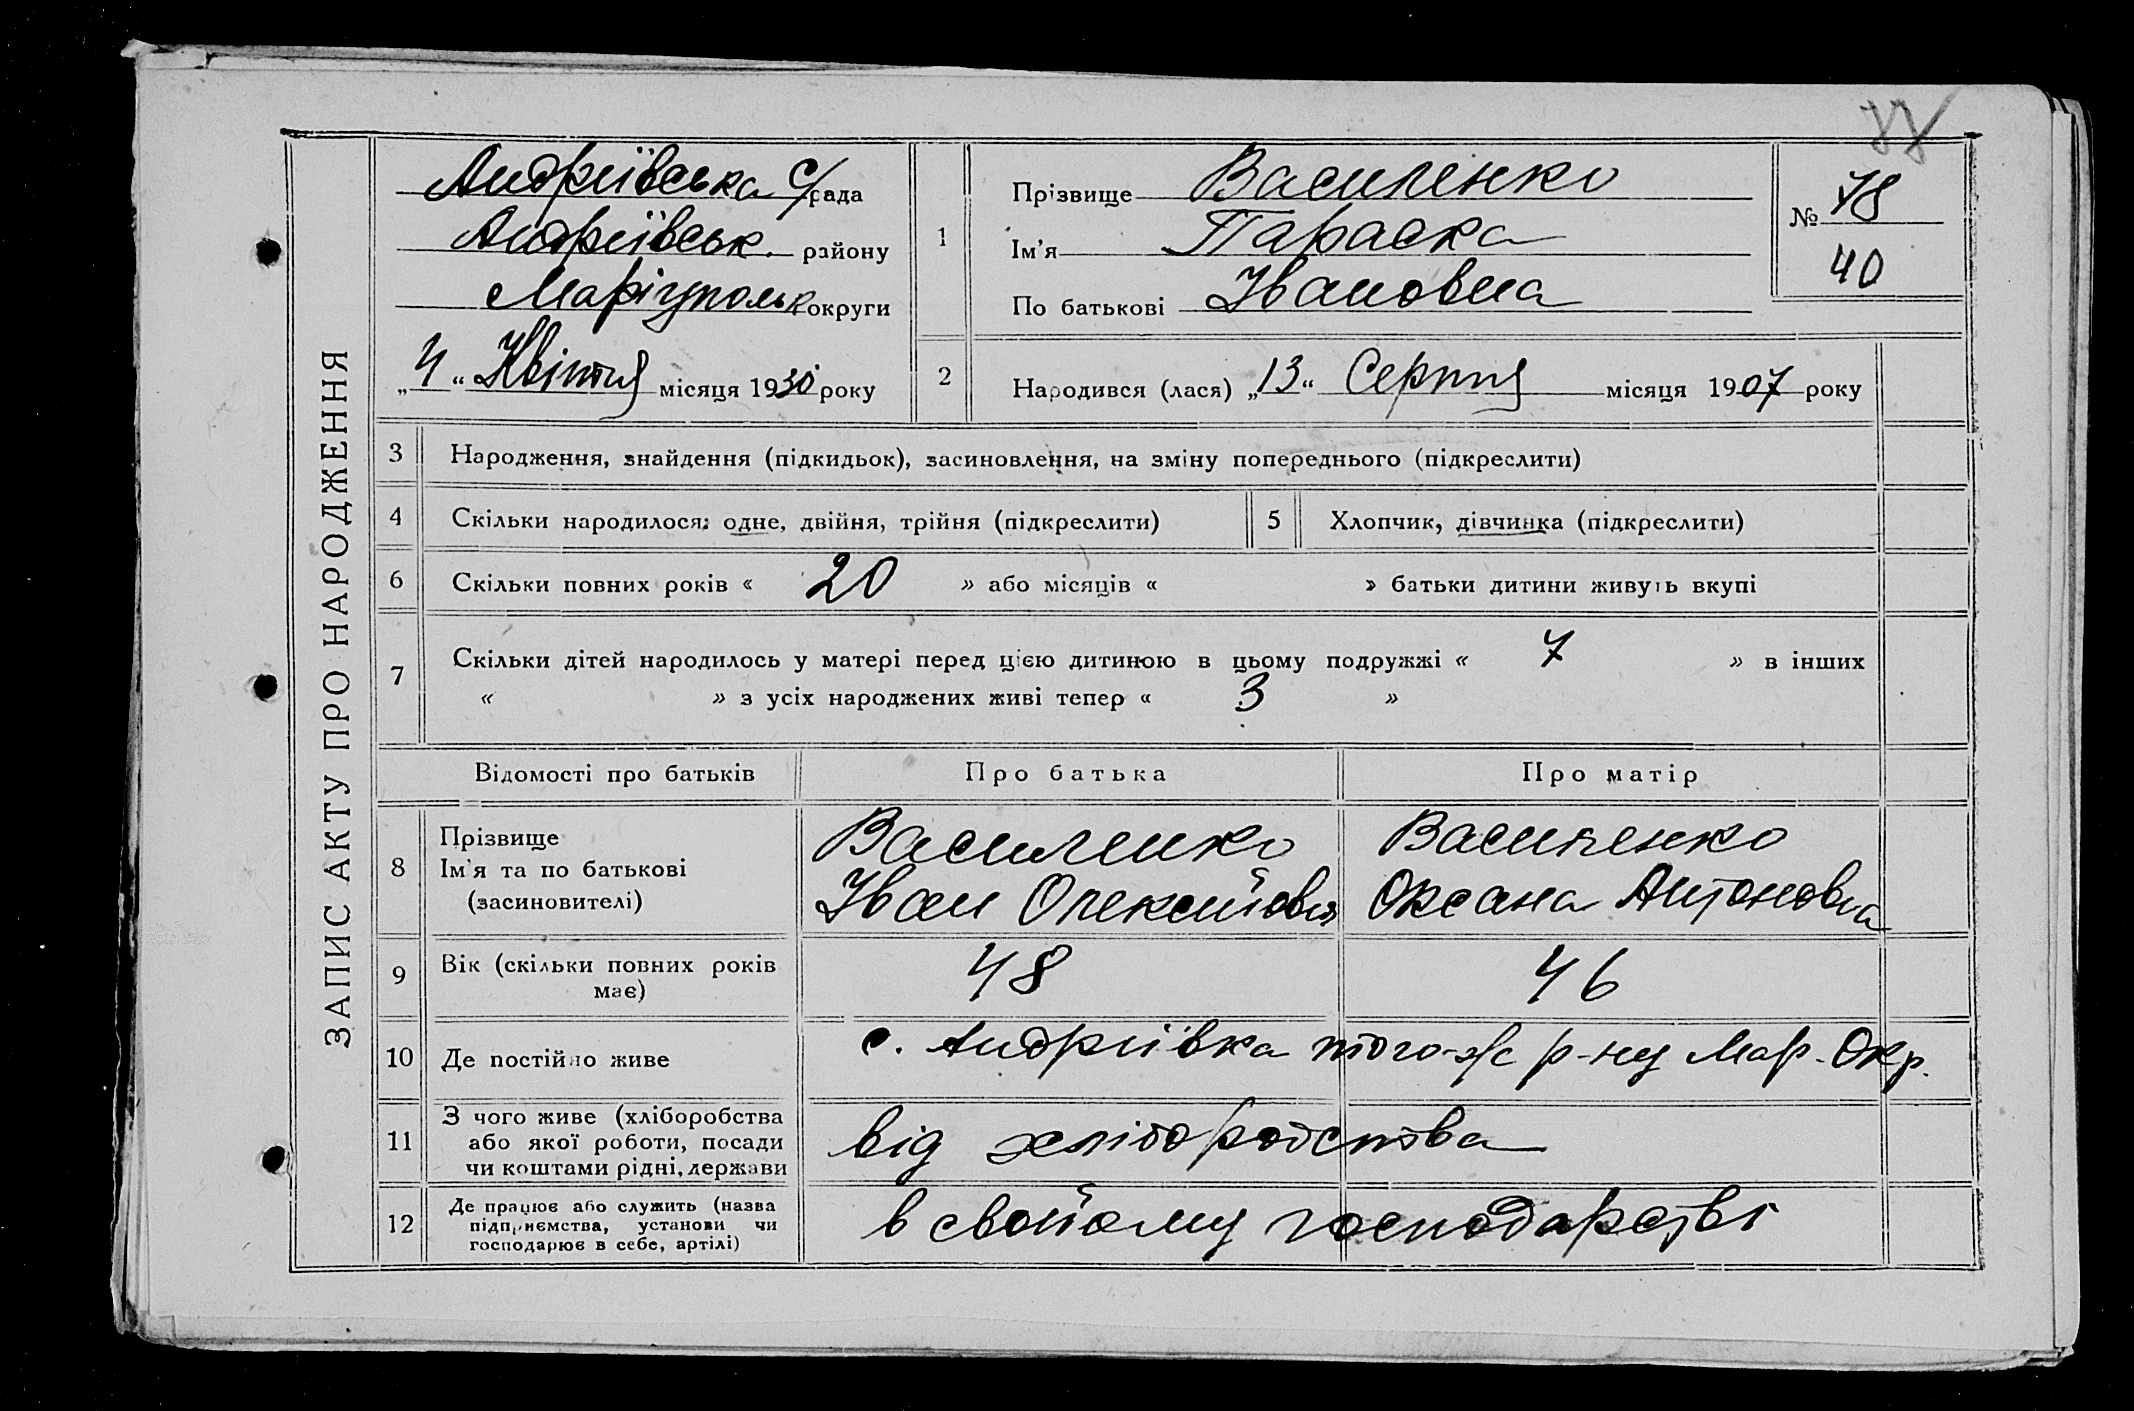 ЗАПИС АКТУ ПРО НАРОДЖЕННЯ
Андріївська С/рада
Андріївськ. району
Маріупольк округи
„4“ Квітня місяця 1930 року
1
Прізвище Василенко
Ім'я Параска
По батькові Івановна
№ 78
40
2
Народився (лася) „13“ Серпня місяця 1907 року
3 Народження, знайдення (підкидьок), засиновлення, на зміну попереднього (підкреслити)
4 Скільки народилося: одне, двійня, трійня (підкреслити) 5 Хлопчик, дівчинка (підкреслити)
6 Скільки повних років « 20 » або місяців « » батьки дитини живуть вкупі
7 Скільки дітей народилось у матері перед цією дитиною в цьому подружжі « 7 » в інших
« » з усіх народжених живі тепер « 3 »
Відомості про батьків Про батька Про матір
8 Прізвище
Ім'я та по батькові
(засиновителі)
Василенко
Іван Олексійович
Василенко
Оксана Антоновна
9 Вік (скільки повних років
має)
48 46
10 Де постійно живе с. Андріївка того-ж р-ну Мар. Окр.
11 З чого живе (хліборобства
або якої роботи, посади
чи коштами рідні, держави
від хліборобства
12 Де працює або служить (назва
підприємства, установи чи
господарює в себе, артілі)
в свойому господарстві